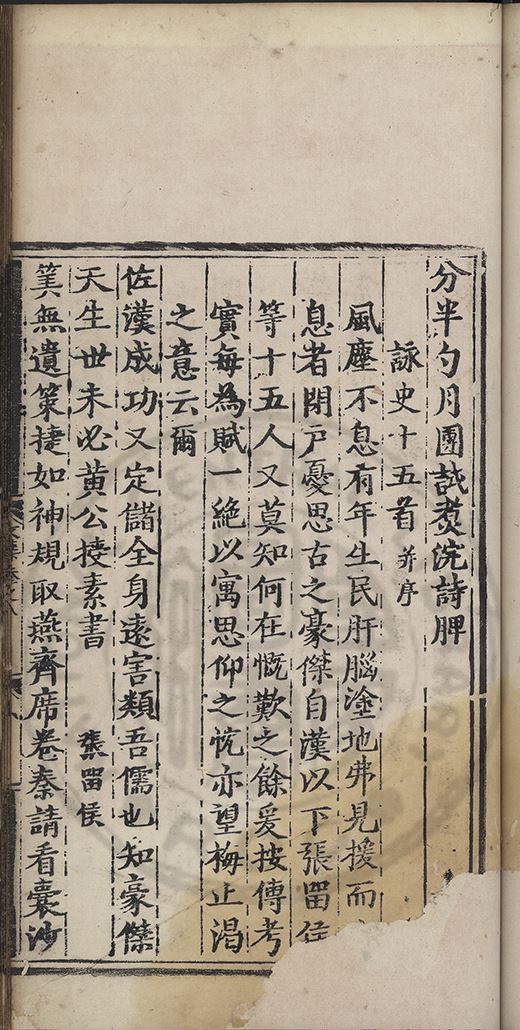 分半勺月團試煑浣詩脾
詠史十五首 并序
風塵不息有年生民肝腦塗地弗見援而
息者閉戸憂思古之豪傑自漢以下張畱侯
等十五人又莫知何在慨歎之餘爰按傳考
實每為賦一絶以寓思仰之忱亦望梅止渴
之意云爾
佐漢成功又定儲全身遠害類吾儒也知豪傑
天生世未必黄公授素書 張畱侯
筭無遺策捷如神規取燕齊席卷秦請看囊沙